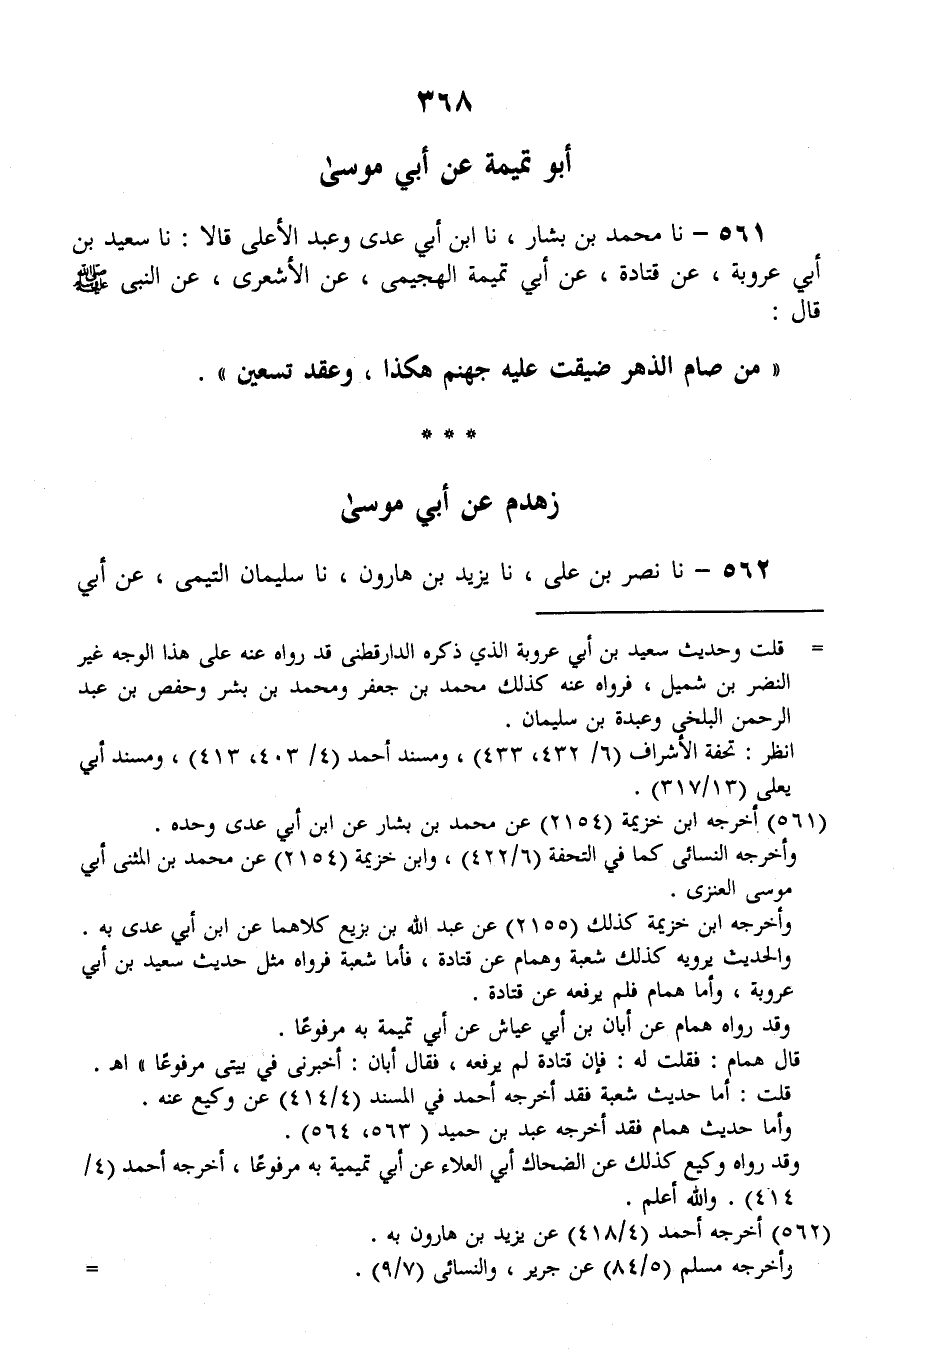 ٣٦٨
أبو تميمة عن أبي موسىٰ
٥٦١ – نا محمد بن بشار ، نا ابن أبي عدى وعبد الأعلى قالا : نا سعيد بن
أبي عروبة ، عن قتادة ، عن أبي تميمة الهجيمى ، عن الأشعرى ، عن النبى ﷺ
قال :
« من صام الدهر ضيقت عليه جهنم هكذا ، وعقد تسعين » .
* * *
زهدم عن أبي موسىٰ
٥٦٢ – نا نصر بن على ، نا يزيد بن هارون ، نا سليمان التيمى ، عن أبي
= قلت وحديث سعيد بن أبي عروبة الذي ذكره الدارقطنى قد رواه عنه على هذا الوجه غير
النضر بن شميل ، فرواه عنه كذلك محمد بن جعفر ومحمد بن بشر وحفص بن عبد
الرحمن البلخى وعبدة بن سليمان .
انظر : تحفة الأشراف (٦/ ٤٣٢، ٤٣٣) ، ومسند أحمد (٤/ ٤٠٣، ٤١٣) ، ومسند أبي
يعلى (٣١٧/١٣) .
(٥٦١) أخرجه ابن خزيمة (٢١٥٤) عن محمد بن بشار عن ابن أبي عدى وحده .
وأخرجه النسائى كما في التحفة (٤٢٢/٦) ، وابن خزيمة (٢١٥٤) عن محمد بن المثنى أبي
موسى العنزى .
وأخرجه ابن خزيمة كذلك (٢١٥٥) عن عبد الله بن بزيع كلاهما عن ابن أبي عدى به .
والحديث يرويه كذلك شعبة وهمام عن قتادة ، فأما شعبة فرواه مثل حديث سعيد بن أبي
عروبة ، وأما همام فلم يرفعه عن قتادة .
وقد رواه همام عن أبان بن أبي عياش عن أبي تميمة به مرفوعًا .
قال همام : فقلت له : فإن قتادة لم يرفعه ، فقال أبان : أخبرنى في بيتى مرفوعًا » اهـ .
قلت : أما حديث شعبة فقد أخرجه أحمد في المسند (٤١٤/٤) عن وكيع عنه .
وأما حديث همام فقد أخرجه عبد بن حميد ( ٥٦٣، ٥٦٤) .
وقد رواه وكيع كذلك عن الضحاك أبي العلاء عن أبي تميمية به مرفوعًا ، أخرجه أحمد (٤/
٤١٤) . والله أعلم .
(٥٦٢) أخرجه أحمد (٤١٨/٤) عن يزيد بن هارون به .
وأخرجه مسلم (٨٤/٥) عن جرير ، والنسائى (٩/٧) . =